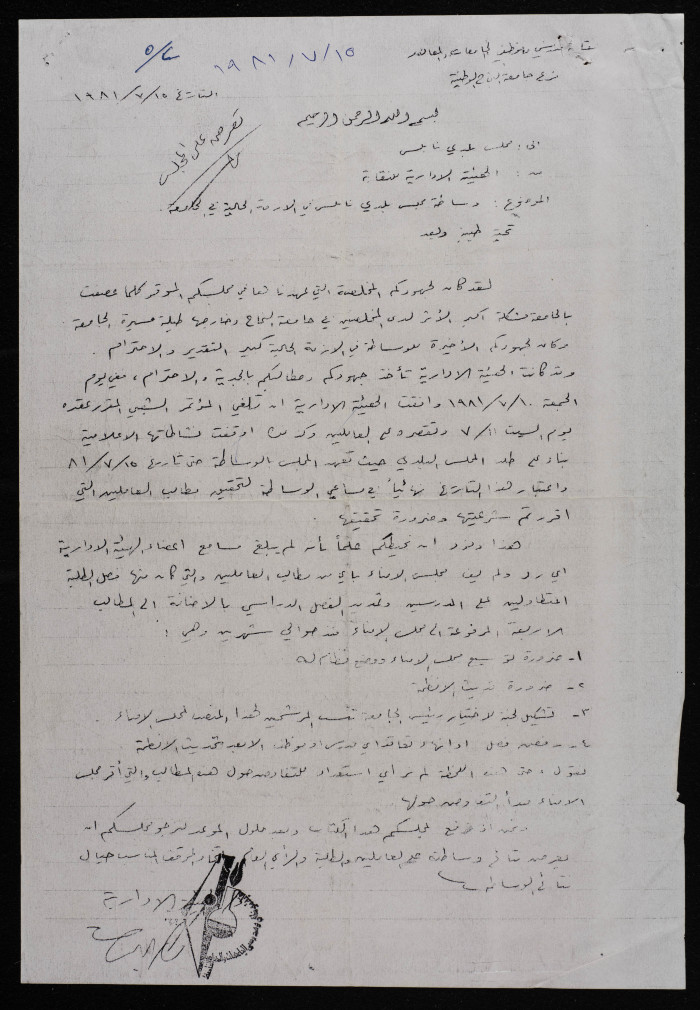 نقابة مدرسي وموظفي الجامعات والمعاهد
فرع جامعة النجاح الوطنية
١٩٨١/٧/١٥
التاريخ ١٩٨١/٧/١٥
بسم الله الرحمن الرحيم
تعرض على المجلس
الى: مجلس بلدي نابلس
من: الهيئة الادارية للنقابة
الموضوع: وساطة مجلس بلدي نابلس في الازمة الحالية في الجامعة.
تحية طيبة وبعد
لقد كان لجهودكم المخلصة التي عهدناها في مجلسكم الموقر كلما عصفت
بالجامعة مشكلة اكبر الأثر لدى المخلصين في جامعة النجاح وخارجها طيلة مسيرة الجامعة
وكان لجهودكم الأخيرة للوساطة في الازمة الحالية كبير التقدير والاحترام.
وقد كانت الهيئة الادارية تأخذ جهودكم ومطالبكم بالجدية والاحترام، ففي يوم
الجمعة ١٩٨١/٧/١٠ وافقت الهيئة الادارية ان تلغي المؤتمر الشعبي المقرر عقده
يوم السبت ٧/١١ وتقصره على العاملين وكذلك اوقفت نشاطاتها الاعلامية
بناء على طلب المجلس البلدي حيث تعهد المجلس الوساطة حتى تاريخ ٨١/٧/١٥
واعتبار هذا التاريخ نهائياً في مساعي الوساطة لتحقيق مطالب العاملين التي
اقررتم شرعيتها وضرورة تحقيقها.
هذا ونود ان نحيطكم علماً بأنه لم يبلغ مسامع اعضاء الهيئة الادارية
اي رد ولم يف مجلس الامناء باي من مطالب العاملين والتي كان منها فصل الطلبة
المتطاولين على المدرسين وتمديد الفصل الدراسي بالاضافة الى المطالب
الاربعة المرفوعة الى مجلس الامناء منذ حوالي شهرين وهي:
١- ضرورة توسيع مجلس الامناء ووضع نظام له
٢- ضرورة تحديث الانظمة
٣- تشكيل لجنة لاختيار رئيس الجامعة المرشحين لهذا المنصب لمجلس الامناء.
٤- رفض فصل او انهاء تعاقد اي مدرس او موظف الا بعد تحديث الانظمة
نقول، حتى هذه اللحظة لم نر أي استعداد للتفاوض حول هذه المطالب والتي أقر مجلس
الامناء مبدأ التفاوض حولها.
ونحن اذ نرفع لمجلسكم هذا الكتاب وبعد حلول الموعد لنرجو مجلسكم ان
يعرض نتائج وساطته على العاملين والطلبة والرأي العام الموقف المناسب حيال
نتائج الوساطة
الهيئة الادارية